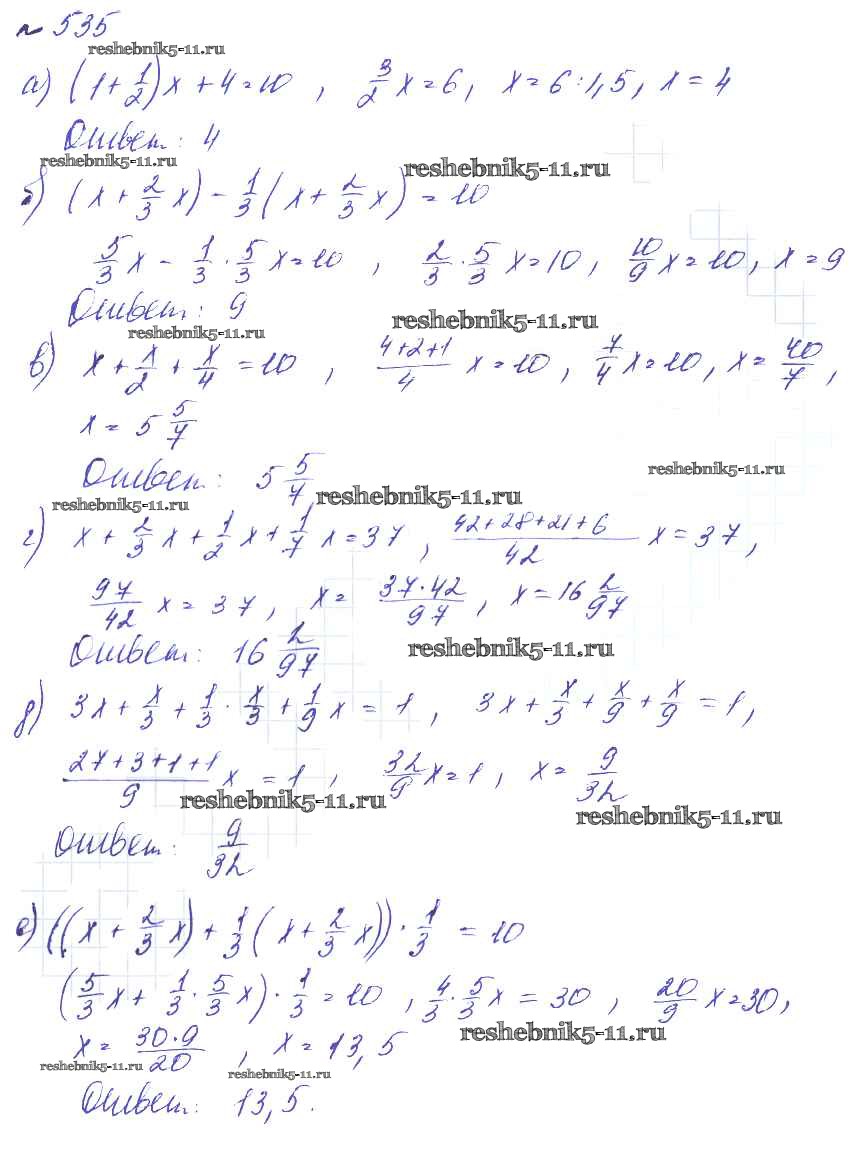 № 535
reshebnik5-11.ru
а) (1+1/2)x + 4 = 10 , 3/2 x = 6, x = 6 : 1,5, x = 4
Ответ: 4
reshebnik5-11.ru
reshebnik5-11.ru
б) (x + 2/3 x) - 1/3 (x + 2/3 x) = 10
5/3 x - 1/3 · 5/3 x = 10 , 2/3 · 5/3 x = 10, 10/9 x = 10, x = 9
Ответ: 9
reshebnik5-11.ru
reshebnik5-11.ru
в) x + x/2 + x/4 = 10 , (4+2+1)/4 x = 10, 7/4 x = 10, x = 40/7 ,
x = 5 5/7
Ответ: 5 5/7
reshebnik5-11.ru
reshebnik5-11.ru
reshebnik5-11.ru
г) x + 2/3 x + 1/2 x + 1/7 x = 37 , (42+28+21+6)/42 x = 37,
97/42 x = 37, x = (37·42)/97 , x = 16 2/97
Ответ: 16 2/97
reshebnik5-11.ru
д) 3x + x/3 + 1/3 · x/3 + 1/9 x = 1 , 3x + x/3 + x/9 + x/9 = 1,
(27+3+1+1)/9 x = 1 , 32/9 x = 1, x = 9/32
reshebnik5-11.ru
reshebnik5-11.ru
Ответ: 9/32
е) ((x + 2/3 x) + 1/3 (x + 2/3 x)) · 1/3 = 10
(5/3 x + 1/3 · 5/3 x) · 1/3 = 10 , 4/3 · 5/3 x = 30 , 20/9 x = 30,
reshebnik5-11.ru
x = (30·9)/20 , x = 13,5
reshebnik5-11.ru
reshebnik5-11.ru
Ответ: 13,5.